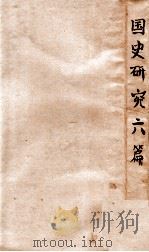 国史研究六篇
mtoou.info
研狗